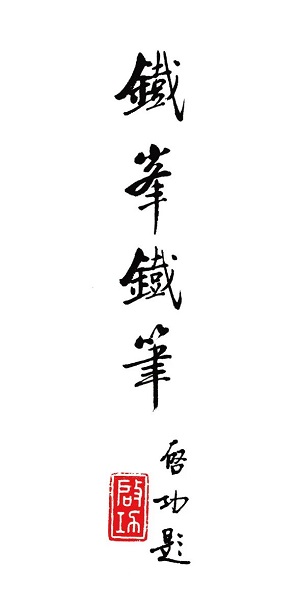 鐵峯鐵筆
啓功題
啓功